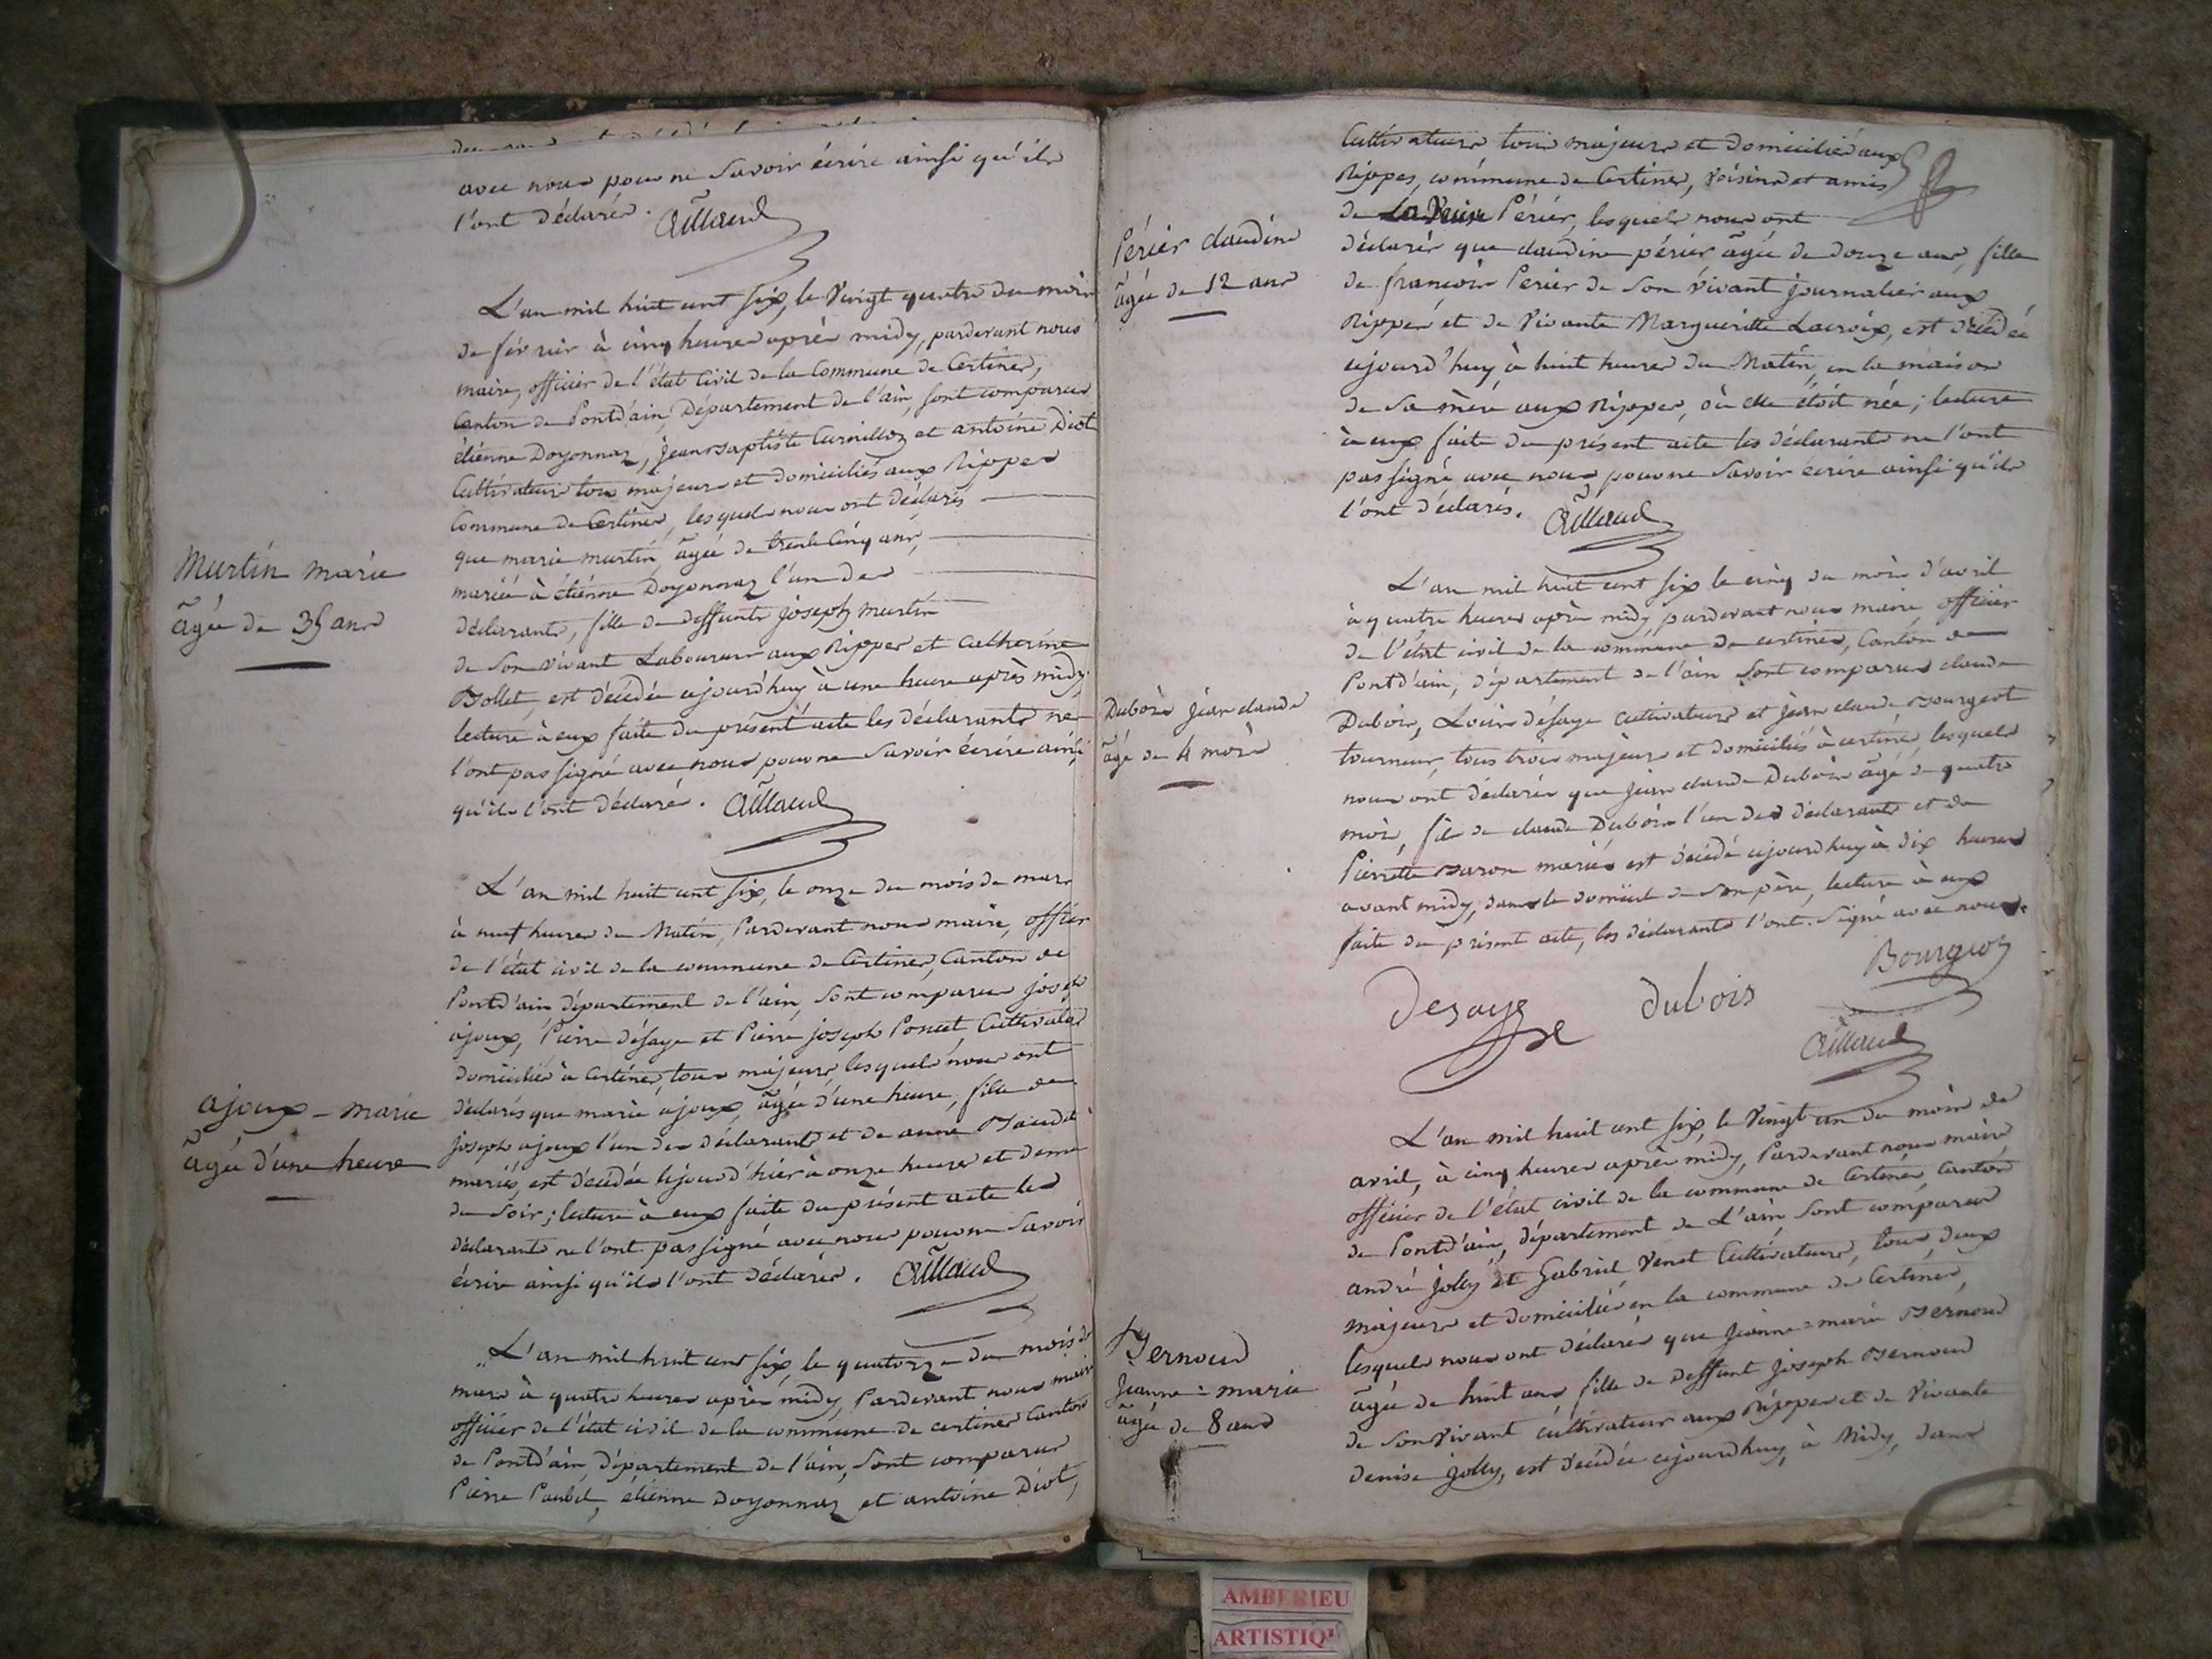 avec nous pour ne Savoir écrire ainsi qu'ils
l'ont déclarés. Aillaud
L'an mil huit cent six, le vingt quatre du mois
de février à cinq heures après midy, pardevant nous
maire, officier de l'état civil de la Commune de Certines,
Canton de Pontd'ain, Département de l'ain, sont comparus
étienne Doyonnaz, jean Baptiste Curnillon et antoine Diot
Cultivateurs tous majeurs et domiciliés aux Rippes
Commune de Certines, lesquels nous ont déclarés
que marie murtin, âgée de trente cinq ans,
Murtin marie
âgée de 35 ans
mariée à étienne Doyonnaz l'un des
déclarants, fille de deffunts joseph murtin
de son vivant Laboureur aux Rippes et Catherine
Bollet, est décédée cejourd'huy à une heure après midy,
lecture à eux faite du présent acte les déclarants ne
l'ont pas signé avec nous pour ne Savoir écrire ainsi
qu'ils l'ont déclaré. Aillaud
L'an mil huit cent six, le onze du mois de mars
à neuf heures du Matin, Pardevant nous maire, offier
de l'état civil de la commune de Certines, Canton de
Pontd'ain département de l'ain, sont comparus joseph
ajoux, Pierre désaye et Pierre joseph Poncet Cultivateurs
domiciliés à Certines, tous majeurs lesquels nous ont
ajoux - marie
âgée d'une heure
déclarés que marie ajoux, âgée d'une heure, fille de
joseph ajoux l'un des déclarants et de anne
mariés, est décédée lejourd'hier à onze heures et demie
du soir; lecture à eux faite du présent acte les
déclarants ne l'ont pas signé avec nous pour ne Savoir
écrire ainsi qu'ils l'ont déclarés. Aillaud
L'an mil huit cent six, le quatorze du mois de
mars à quatre heures après midy, Pardevant nous maire
officier de l'état civil de la commune de certines Canton
de Pontd'ain, département de l'ain, Sont comparus
Pierre Paubel, étienne Doyonnaz et antoine Diot,
Cultivateurs tous majeurs et domiciliés aux
Rippes, commune de Certines, voisins et amis
de Périer, lesquels nous ont
Périer claudine
âgée de 12 ans
déclarés que claudine périer âgée de douze ans, fille
de françois Perier de son vivant journalier aux
Rippes et de vivante Marguerite Lacroix, est décédée
cejourd'huy à huit heures du Matin, en la maison
de sa mère aux Rippes, où elle étoit née; lecture
à eux faite du présent acte les déclarants ne l'ont
pas signé avec nous pour ne Savoir écrire ainsi qu'ils
l'ont déclarés. Aillaud
L'an mil huit cent six le cinq du mois d'avril
à quatre heures après midy pardevant nous maire officier
de l'état civil de la commune de certines, Canton de
Pontd'ain, département de l'ain Sont comparus claude
Dubois jean claude
âgé de 4 mois
Dubois, Louis désaye cultivateurs et jean claude Bourgeot
tourneur, tous trois majeurs et domiciliés à certines lesquels
nous ont déclarés que jean claude Dubois âgé de quatre
mois, fils de claude Dubois l'un des déclarants et de
Pierrette Baron mariés est décédé cejourd'huy à dix heures
avant midy, dans le domicile de son père, lecture à eux
faite du présent acte, les déclarants l'ont Signé avec nous.
Desaye Dubois Bourgeoz
Aillaud
L'an mil huit cent six, le vingt un du mois de
avril, à cinq heures après midy, Pardevant nous maire
officier de l'état civil de la commune de Certines, Canton
de Pontd'ain, département de L'ain Sont comparus
andré jolly et Gabriel Venet Cultivateurs, tous deux
majeurs et domiciliés en la commune de Certines,
Bernoud
Jeanne=marie
âgée de 8 ans
lesquels nous ont déclarés que jeanne=marie Bernoud
âgée de huit ans, fille de deffunt joseph Bernoud
de son vivant cultivateur aux Rippes et de vivante
denise jolly, est décédée cejourdhuy, à Midy, dans
AMBERIEU
ARTISTIQ